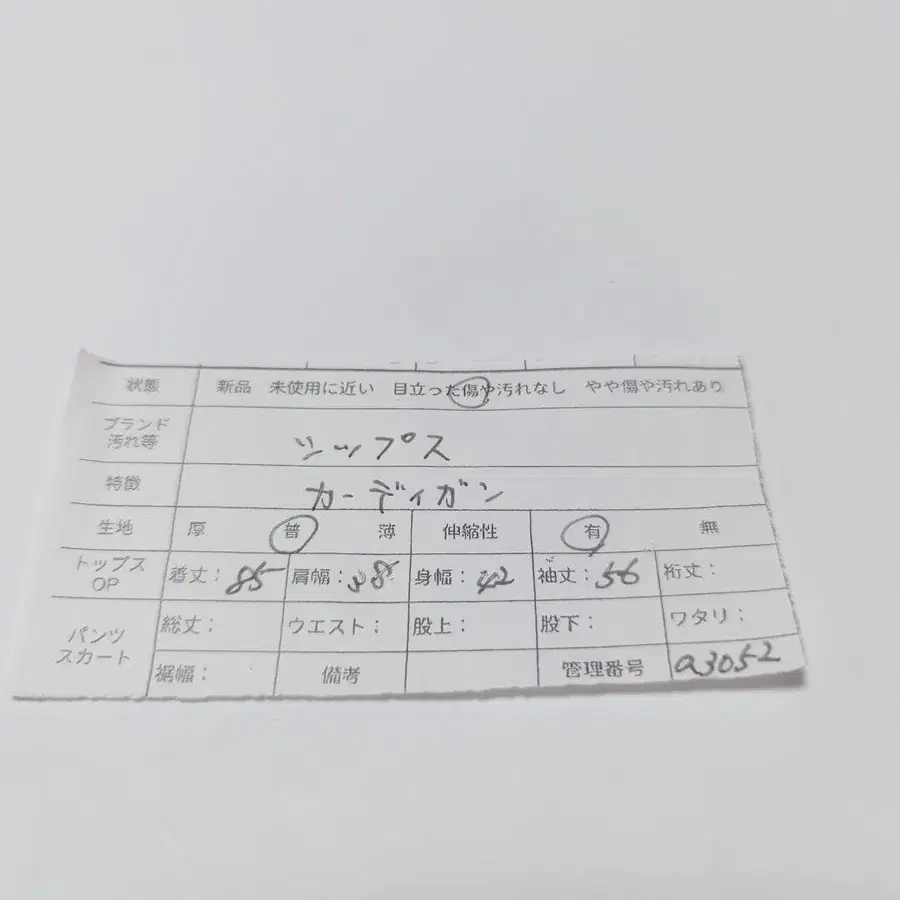 状態 新品 未使用に近い 目立った傷や汚れなし やや傷や汚れあり
ブランド
汚れ等 シップス
特徴 カーディガン
生地 厚 普 薄 伸縮性 有 無
トップス
OP 着丈: 85 肩幅: 38 身幅: 42 袖丈: 56 裄丈:
パンツ
スカート 総丈: ウエスト: 股上: 股下: ワタリ:
裾幅: 備考 管理番号 a3052